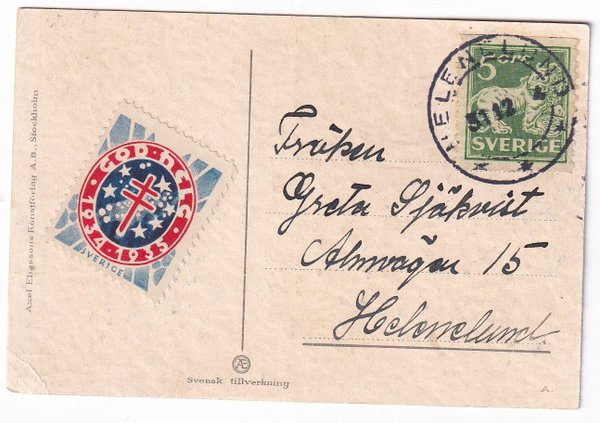 Axel Eliassons Konstförlag A.B., Stockholm
GOD HELG
1934-1935
SVERIGE
5 ÖRE
SVERIGE
HELENELUND
31 12
Fröken
Greta Sjökvist
Almvägen 15
Helenelund.
Æ
Svensk tillverkning
A.